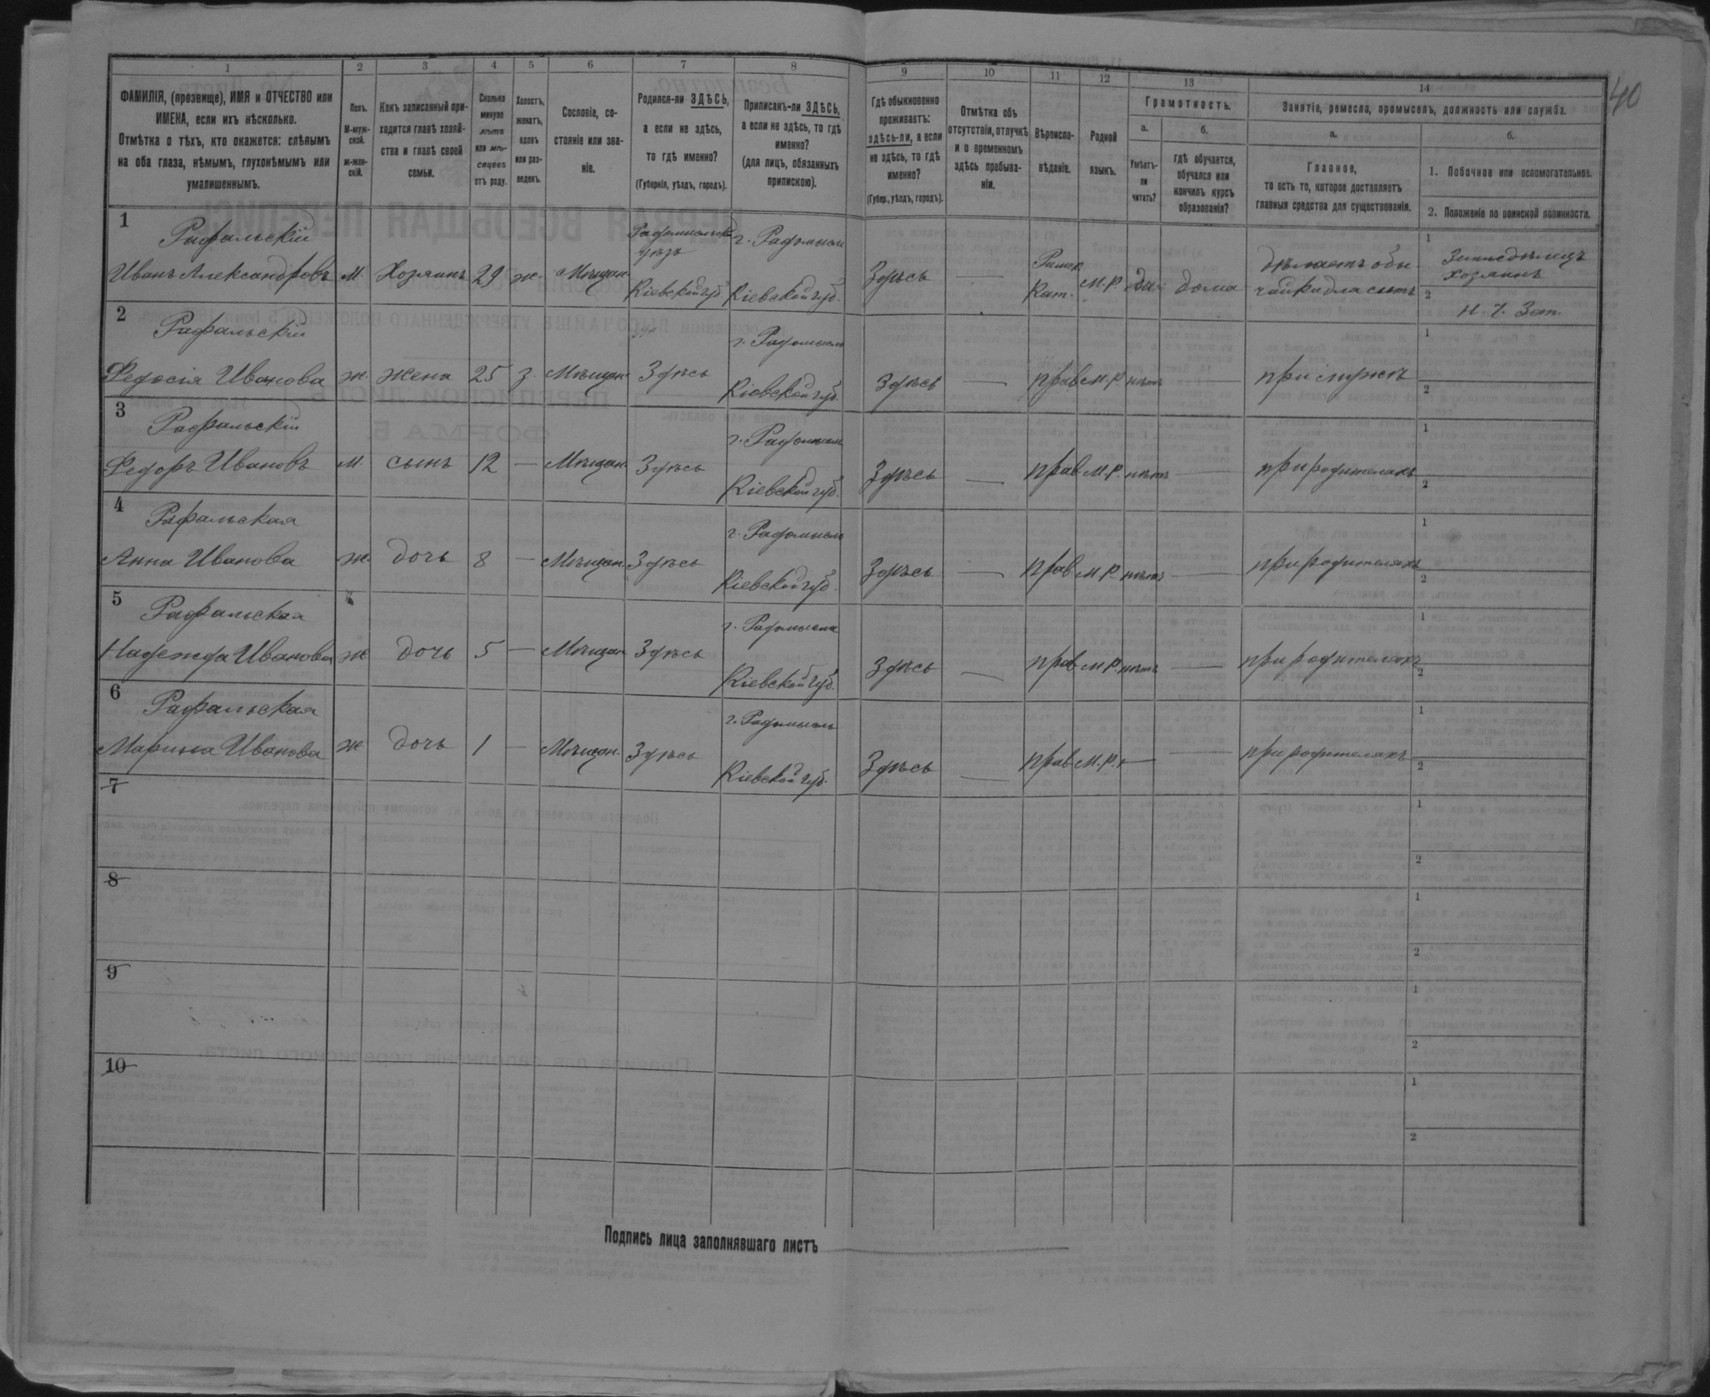 40
1 2 3 4 5 6 7 8 9 10 11 12 13 14
ФАМИЛІЯ, (прозвище), ИМЯ и ОТЧЕСТВО или
ИМЕНА, если ихъ нѣсколько.
Отмѣтка о тѣхъ, кто окажется: слѣпымъ
на оба глаза, нѣмымъ, глухонѣмымъ или
умалишеннымъ.
Полъ.
М-муж-
ской.
ж-жен-
скій.
Какъ записанный при-
ходится главѣ хозяй-
ства и главѣ своей
семьи.
Сколько
минуло
лѣтъ
или мѣ-
сяцевъ
отъ роду.
Холостъ,
женатъ,
вдовъ
или раз-
веденъ.
Сословіе, со-
стояніе или зва-
ніе.
Родился-ли ЗДѢСЬ,
а если не здѣсь,
то гдѣ именно?
(Губернія, уѣздъ, городъ).
Приписанъ-ли ЗДѢСЬ,
а если не здѣсь, то гдѣ
именно?
(для лицъ, обязанныхъ
припискою).
Гдѣ обыкновенно
проживаетъ:
здѣсь-ли, а если
не здѣсь, то гдѣ
именно?
(Губер., уѣздъ, городъ).
Отмѣтка объ
отсутствіи, отлучкѣ
и о временномъ
здѣсь пребыва-
ніи.
Вѣроиспо-
вѣданіе.
Родной
языкъ.
Грамотность.
а.
Умѣетъ-
ли
читать?
б.
гдѣ обучается,
обучался или
кончилъ курсъ
образованія?
Занятіе, ремесло, промыселъ, должность или служба.
а.
Главное,
то есть то, которое доставляетъ
главныя средства для существованія.
б.
1. Побочное или вспомогательное.
2. Положеніе по воинской повинности.
1
Рафальскій
Иванъ Александровъ м. Хозяинъ 29 ж. Мѣщан.
Радомысльск.
уѣздъ
Кіевской губ.
г. Радомысль
Кіевской губ.
Здѣсь —
Римск.
Кат.
М.Р. да дома
1
Земледѣлецъ
хозяинъ
2
2
Рафальскій
Федосія Иванова ж. жена 25 з. Мѣщан. Здѣсь
г. Радомысль
Кіевской губ.
Здѣсь — прав. М.Р. нѣтъ — при мужѣ
1
2
3
Рафальскій
Федоръ Ивановъ м. сынъ 12 — Мѣщан. Здѣсь
г. Радомысль
Кіевской губ.
Здѣсь — прав. М.Р. нѣтъ — при родителяхъ
1
2
4
Рафальская
Анна Иванова ж. дочь 8 — Мѣщан. Здѣсь
г. Радомысль
Кіевской губ.
Здѣсь — прав. М.Р. нѣтъ — при родителяхъ
1
2
5
Рафальская
Надежда Иванова ж. дочь 5 — Мѣщан. Здѣсь
г. Радомысль
Кіевской губ.
Здѣсь — прав. М.Р. нѣтъ — при родителяхъ
1
2
6
Рафальская
Марина Иванова ж дочь 1 — Мѣщан. Здѣсь
г. Радомысль
Кіевской губ.
Здѣсь — прав. М.Р. — — при родителяхъ
1
2
7
1
2
8
1
2
9
1
2
10
1
2
Подпись лица заполнявшаго листъ